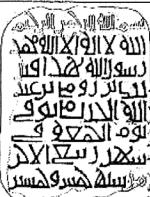 بسم الله الرحمن الرحيم
الله لا اله الا الله محمد
رسول الله هذا قبر
بن عبد
الله في
يوم الجمعة في
شهر ربيع الاخر
سنة خمس وخمسين